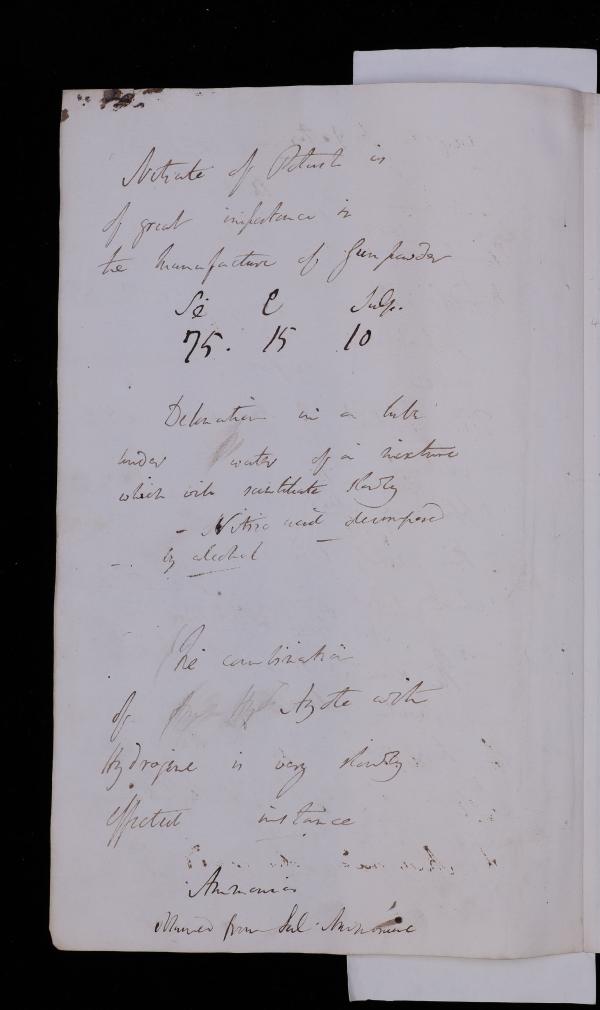 Nitrate of Potash is
of great importance in
the manufacture of Gunpowder
C Sulp.
75. 15 10
Detonation in a tube
under water of a mixture
which will slowly
- Nitric acid decomposed
- by alcohol
The combination
of Azote with
Hydrogene is very slowly
effected instance
Ammonia
from Sal-Ammoniac